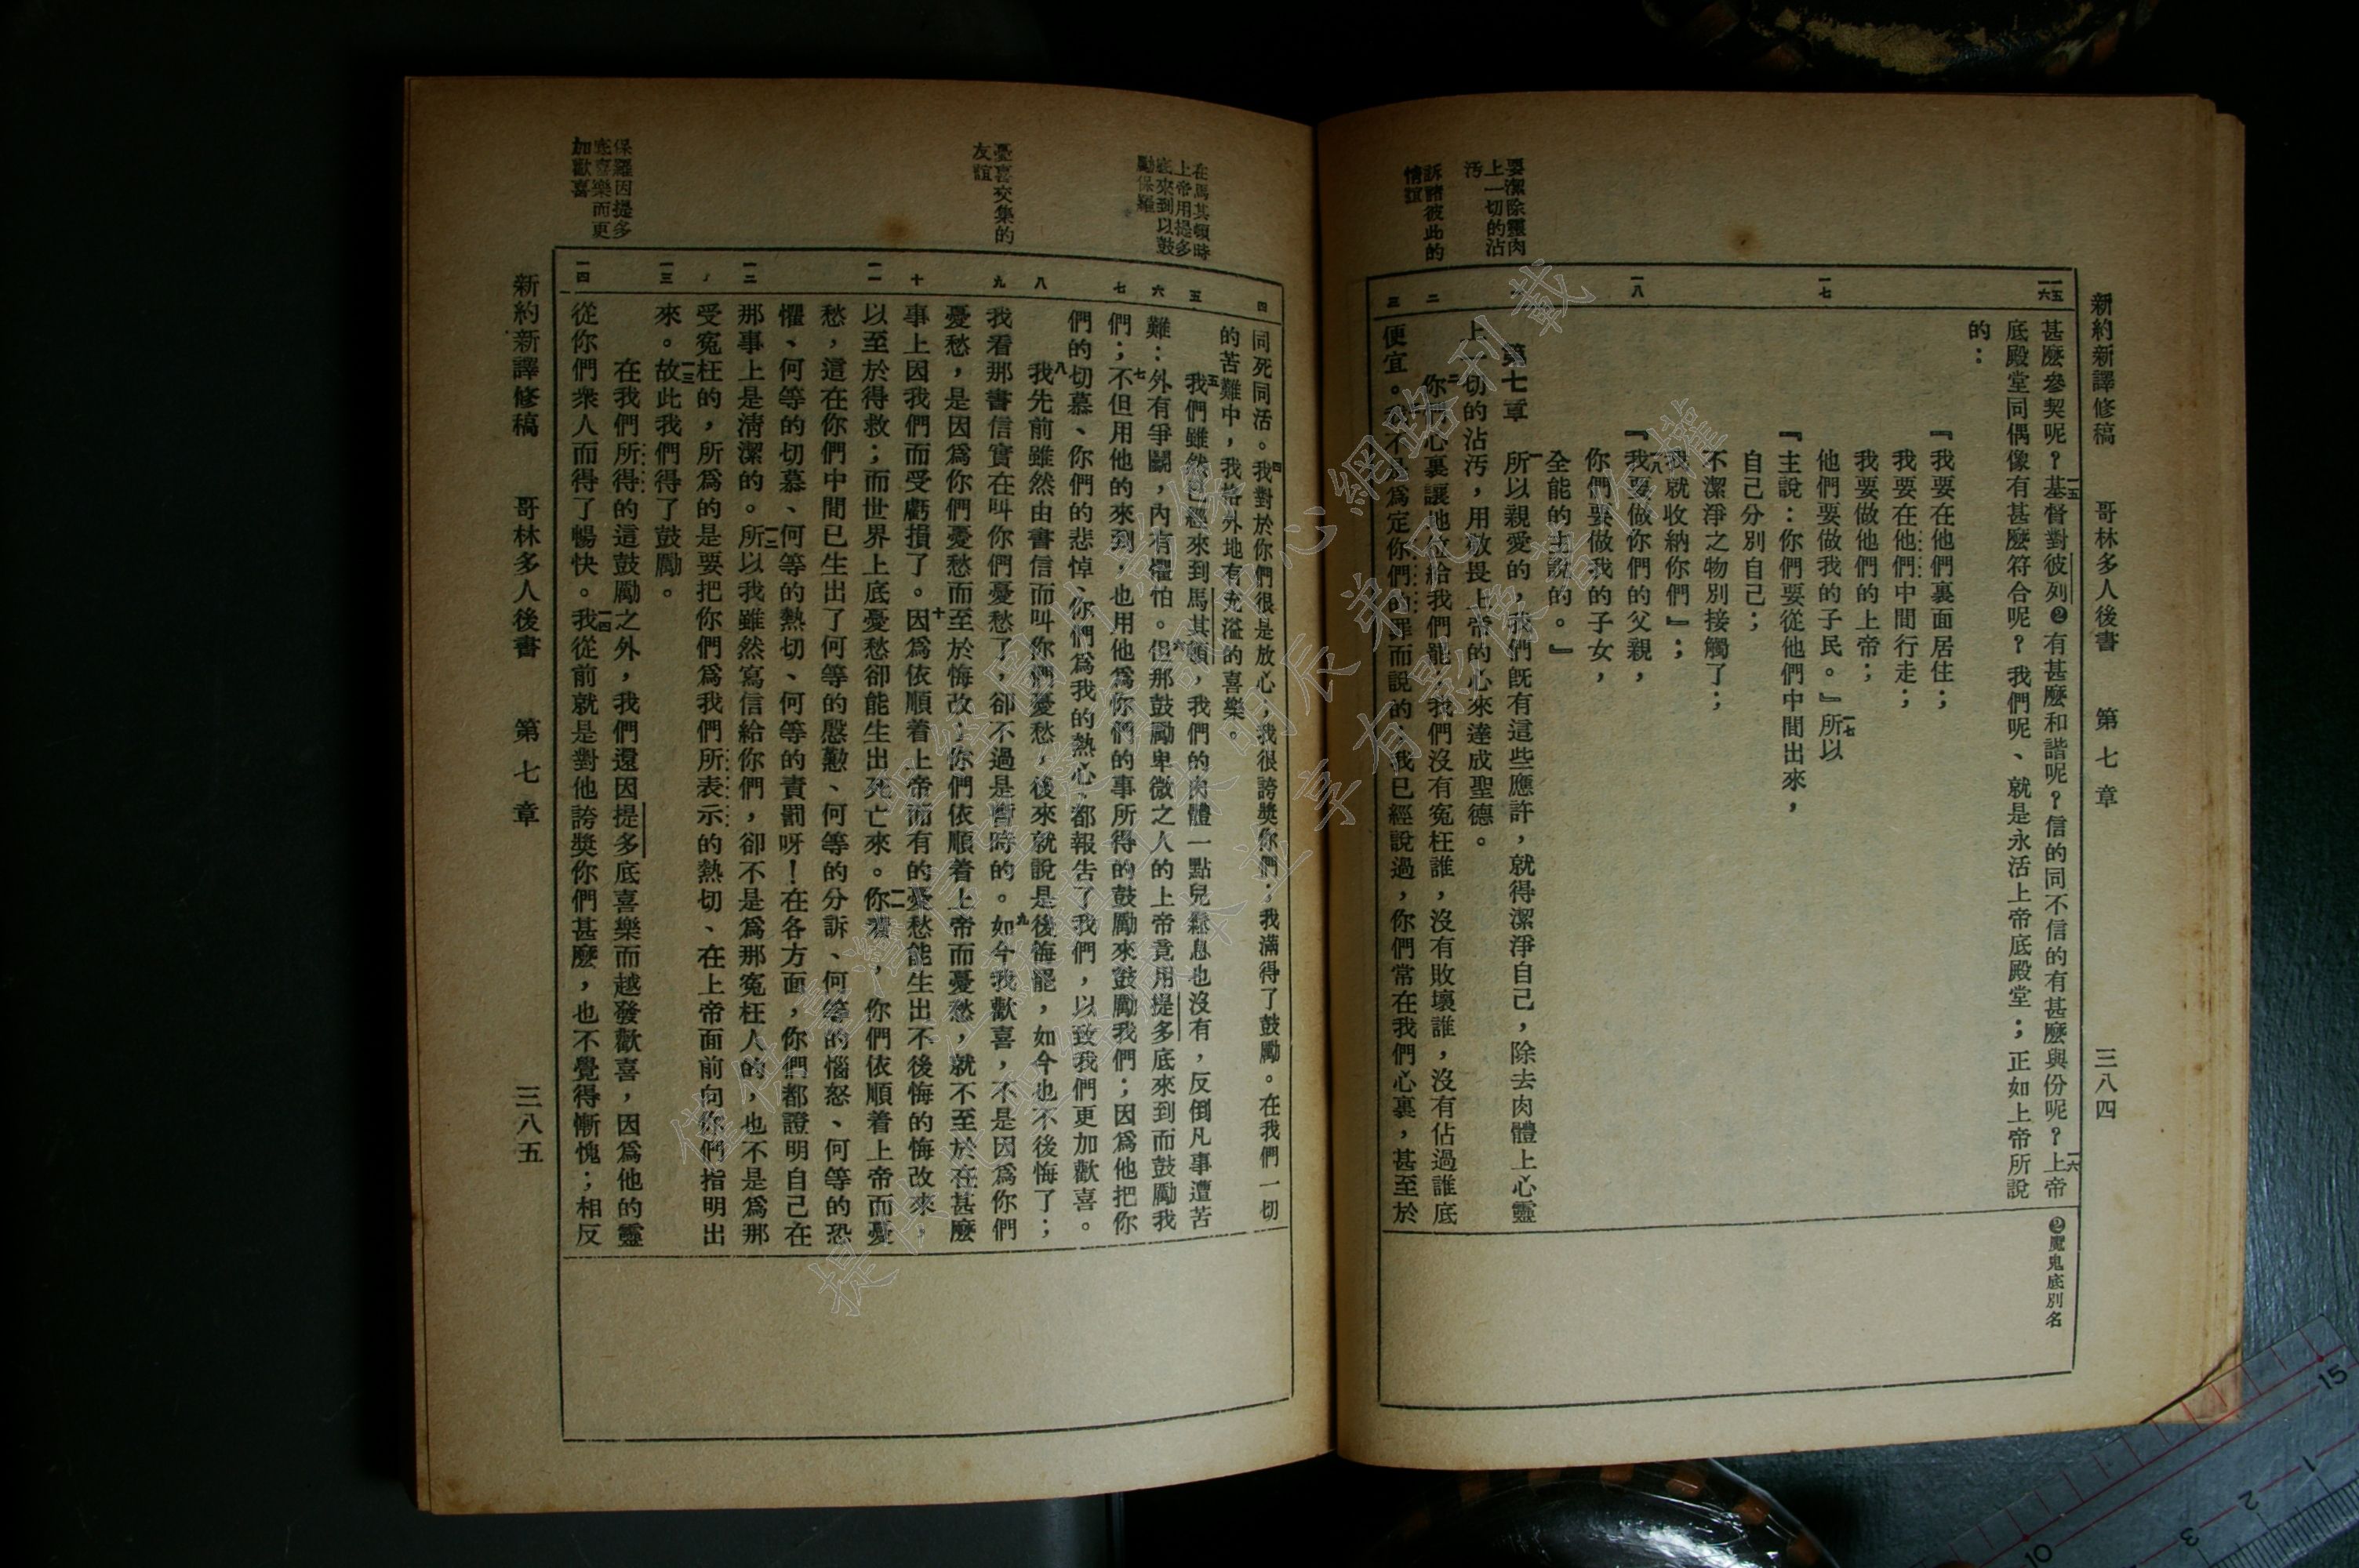 新約新譯修稿　哥林多人後書　第七章　三八四
一五
一六
一七
一八
二
三
要潔除靈肉
上一切的沾
汚
訴諸彼此的
情誼
甚麼參契呢？一五基督對彼列❷有甚麼和諧呢？信的同不信的有甚麼與份呢？一六上帝
底殿堂同偶像有甚麼符合呢？我們呢、就是永活上帝底殿堂；正如上帝所說
的：
『我要在他們裏面居住；
我要在他們中間行走；
我要做他們的上帝；
他們要做我的子民。』一七所以
『主說：你們要從他們中間出來，
自己分別自己；
不潔淨之物別接觸了；
我就收納你們』；
一八『我要做你們的父親，
你們要做我的子女，
全能的主說的。』
第七章　一所以親愛的，我們旣有這些應許，就得潔淨自己，除去肉體上心靈
上一切的沾汚，用敬畏上帝的心來達成聖德。
二你們心裏讓地放給我們罷，我們沒有寃枉誰，沒有敗壞誰，沒有佔過誰底
便宜。我不是爲定你們的罪而說的，我已經說過，你們常在我們心裏，甚至於
❷魔鬼底別名
四
五
六
七
八
九
十
一一
一二
一三
一四
在馬其頓時
上帝用提多
底來到以鼓
勵保羅
憂喜交集的
友誼
保羅因提多
底喜樂而更
加歡喜
同死同活。四我對於你們很是放心；我很誇獎你們；我滿得了鼓勵。在我們一切
的苦難中，我格外地有充溢的喜樂。
五我們雖然已經來到馬其頓，我們的肉體一點兒鬆息也沒有，反倒凡事遭苦
難：外有爭鬬，內有懼怕。六但那鼓勵卑微之人的上帝竟用提多底來到而鼓勵我
們；七不但用他的來到，也用他爲你們的事所得的鼓勵來鼓勵我們；因爲他把你
們的切慕、你們的悲悼、你們爲我的熱心、都報告了我們，以致我們更加歡喜。
八我先前雖然由書信而叫你們憂愁，後來就說是後悔罷，如今也不後悔了；
我看那書信實在叫你們憂愁了，卻不過是暫時的。九如今我歡喜，不是因爲你們
憂愁，是因爲你們憂愁而至於悔改；你們依順着上帝而憂愁，就不至於在甚麼
事上因我們而受虧損了。十因爲依順着上帝而有的憂愁能生出不後悔的悔改來，
以至於得救；而世界上底憂愁卻能生出死亡來。一一你看，你們依順着上帝而憂
愁，這在你們中間已生出了何等的慇懃、何等的分訴、何等的惱怒、何等的恐
懼、何等的切慕、何等的熱切、何等的責罰呀！在各方面，你們都證明自己在
那事上是淸潔的。一二所以我雖然寫信給你們，卻不是爲那寃枉人的，也不是爲那
受寃枉的，所爲的是要把你們爲我們所表示的熱切、在上帝面前向你們指明出
來。一三故此我們得了鼓勵。
在我們所得的這鼓勵之外，我們還因提多底喜樂而越發歡喜，因爲他的靈
從你們衆人而得了暢快。一四我從前就是對他誇獎你們甚麼，也不覺得慚愧；相反
新約新譯修稿　哥林多人後書　第七章　三八五